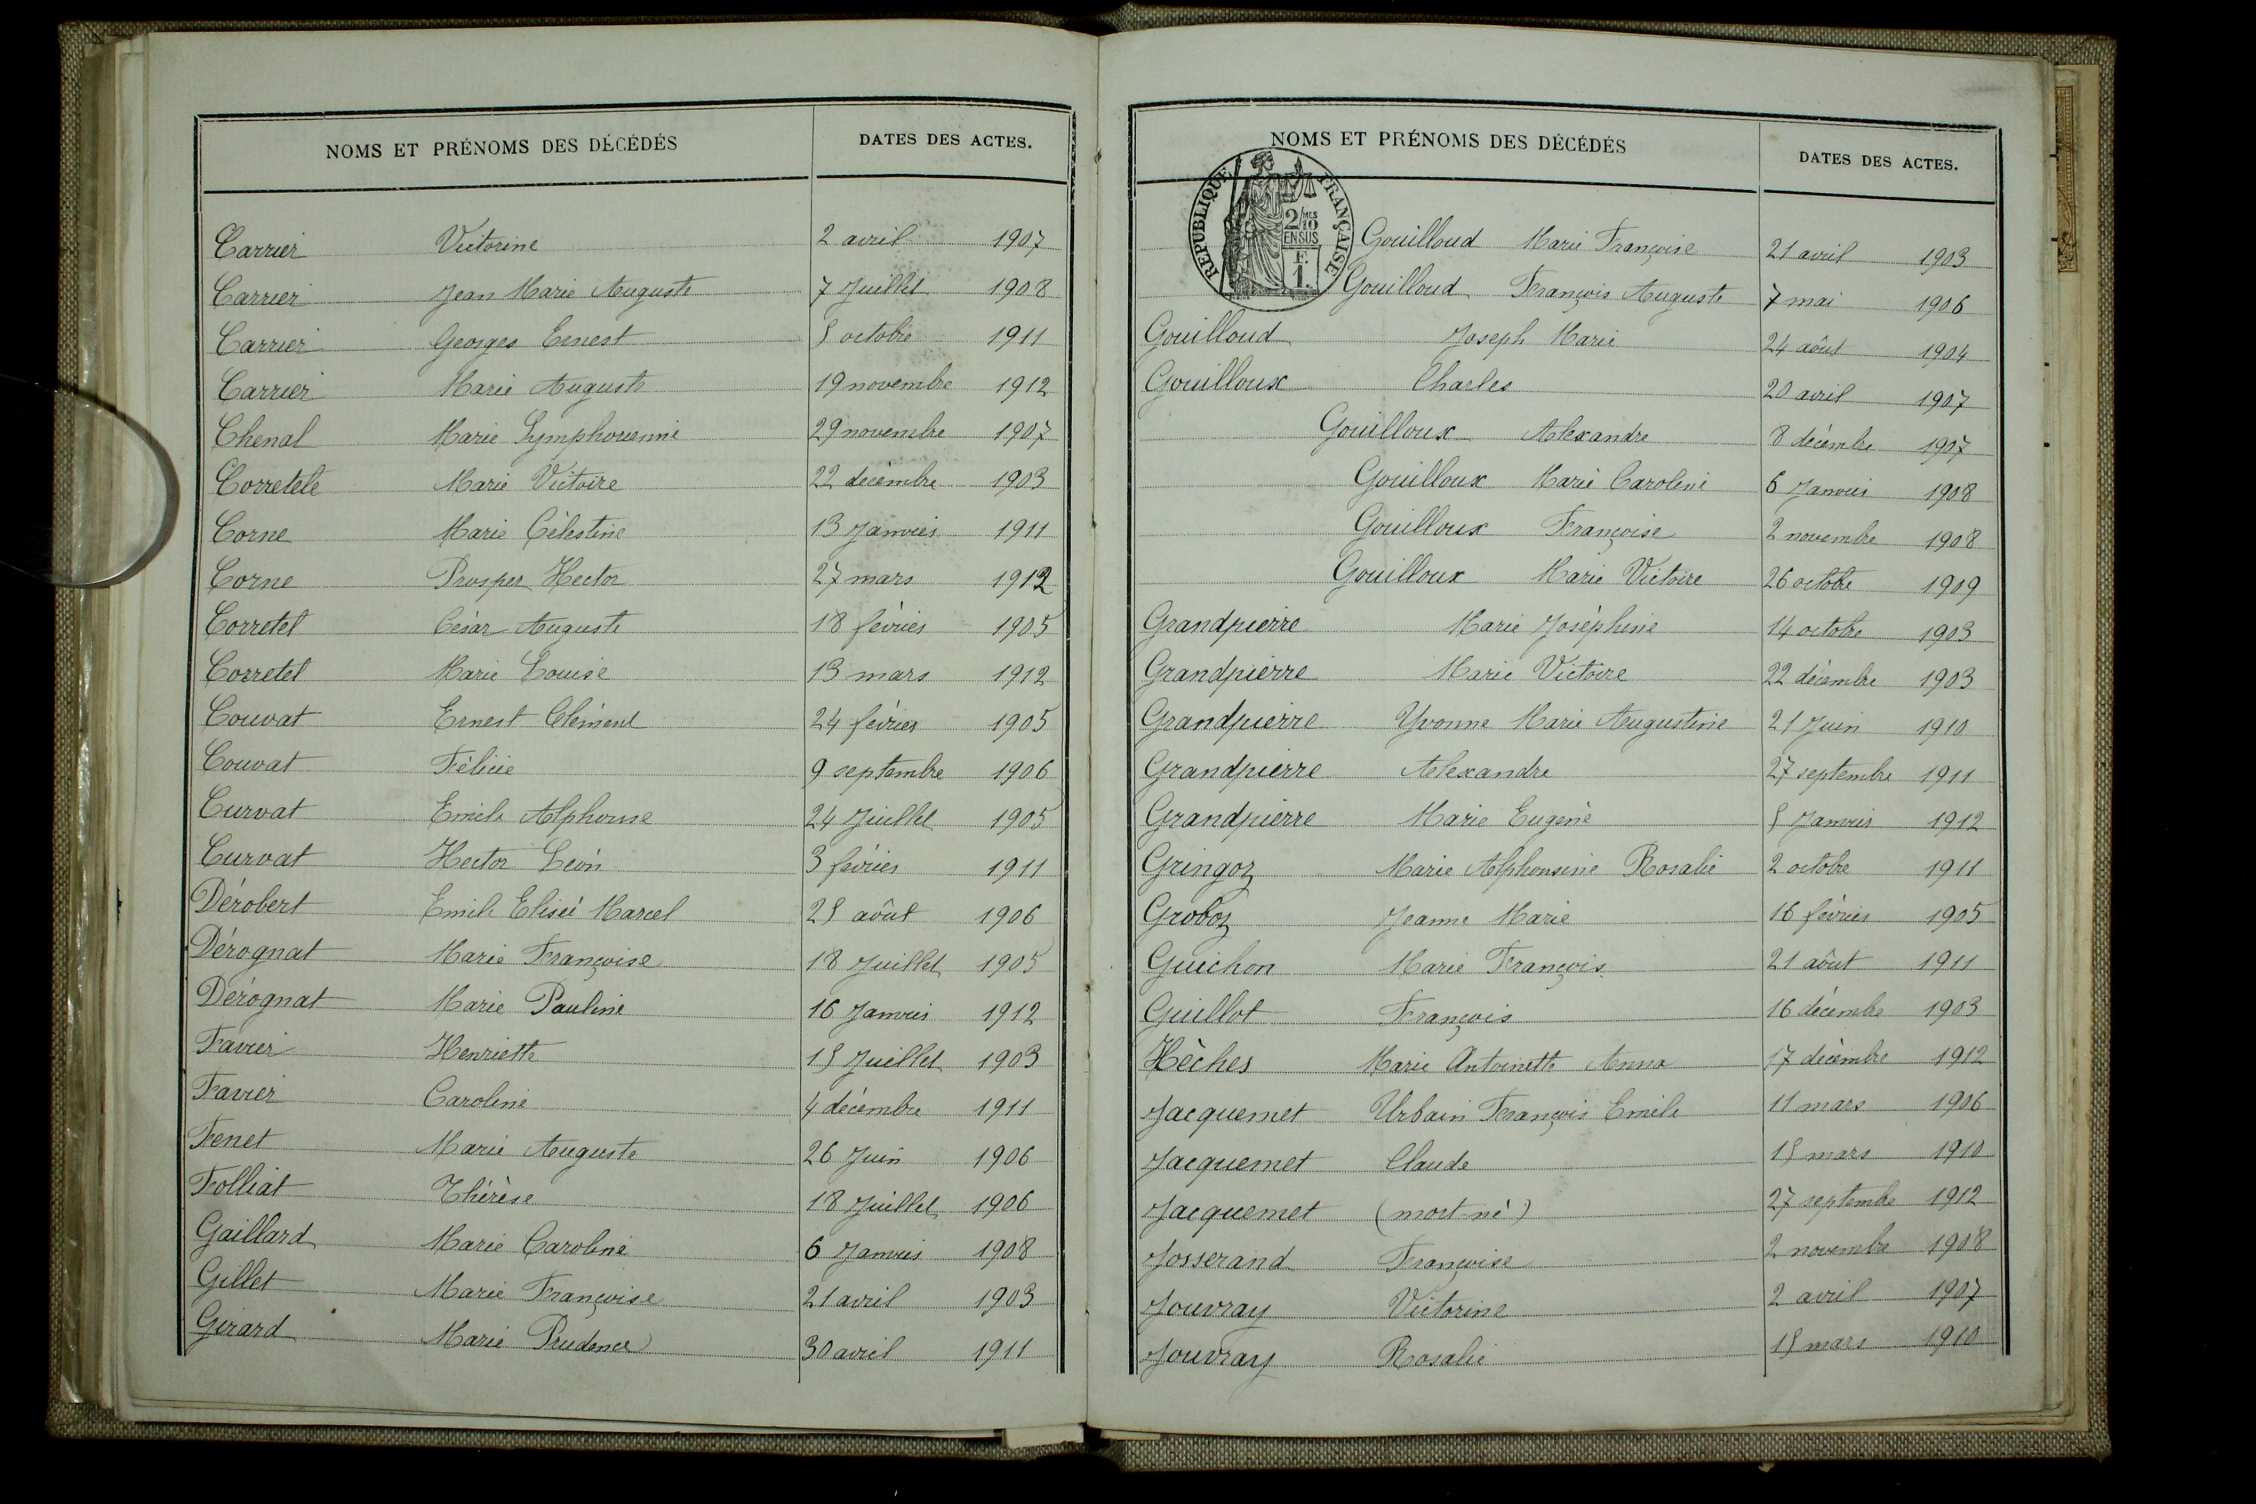 NOMS ET PRÉNOMS DES DÉCÉDÉS DATES DES ACTES.
Carrier Victorine 2 avril 1907
Carrier Jean Marie Auguste 7 Juillet 1908
Carrier Georges Ernest 5 octobre 1911
Carrier Marie Auguste 19 novembre 1912
Chenal Marie 29 novembre 1907
Corretele Marie Victoire 22 décembre 1903
Corne Marie Célestine 13 Janvier 1911
Corne Prosper Hector 27 mars 1912
Corretel César Auguste 18 février 1905
Corretel Marie Louise 13 mars 1912
Couvat Ernest Clément 24 février 1905
Couvat Félicie 9 septembre 1906
Curvat Emile Alphonse 24 Juillet 1905
Curvat Hector Léon 3 février 1911
Dérobert Emile Elisée Marcel 25 août 1906
Dérognat Marie Françoise 18 Juillet 1905
Dérognat Marie Pauline 16 Janvier 1912
Favier Henriette 15 Juillet 1903
Favier Caroline 4 décembre 1911
Fenet Marie Auguste 26 Juin 1906
Folliat Thérèse 18 Juillet 1906
Gaillard Marie Caroline 6 Janvier 1908
Gillet Marie Françoise 21 avril 1903
Girard Marie Prudence 30 avril 1911
NOMS ET PRÉNOMS DES DÉCÉDÉS DATES DES ACTES.
REPUBLIQUE FRANÇAISE
2/10 MES
EN SUS
F.
1.
Gouilloud Marie Françoise 21 avril 1903
Gouilloud François Auguste 7 mai 1906
Gouilloud Joseph Marie 24 août 1904
Gouilloux Charles 20 avril 1907
Gouilloux Alexandre 8 décembre 1907
Gouilloux Marie Caroline 6 Janvier 1908
Gouilloux Françoise 2 novembre 1908
Gouilloux Marie Victoire 26 octobre 1909
Grandpierre Marie Joséphine 14 octobre 1903
Grandpierre Marie Victoire 22 décembre 1903
Grandpierre Yvonne Marie Augustine 21 Juin 1910
Grandpierre Alexandre 27 septembre 1911
Grandpierre Marie Eugène 5 Janvier 1912
Gringoz Marie Alphonsine Rosalie 2 octobre 1911
Groboz Jeanne Marie 16 février 1905
Guichon Marie François 21 août 1911
Guillot François 16 décembre 1903
Hêches Marie Antoinette Anna 17 décembre 1912
Jacquemet Urbain François Emile 11 mars 1906
Jacquemet Claude 15 mars 1910
Jacquemet (mort-né) 27 septembre 1912
Josserand Françoise 2 novembre 1908
Jouvray Victorine 2 avril 1907
Jouvray Rosalie 15 mars 1910